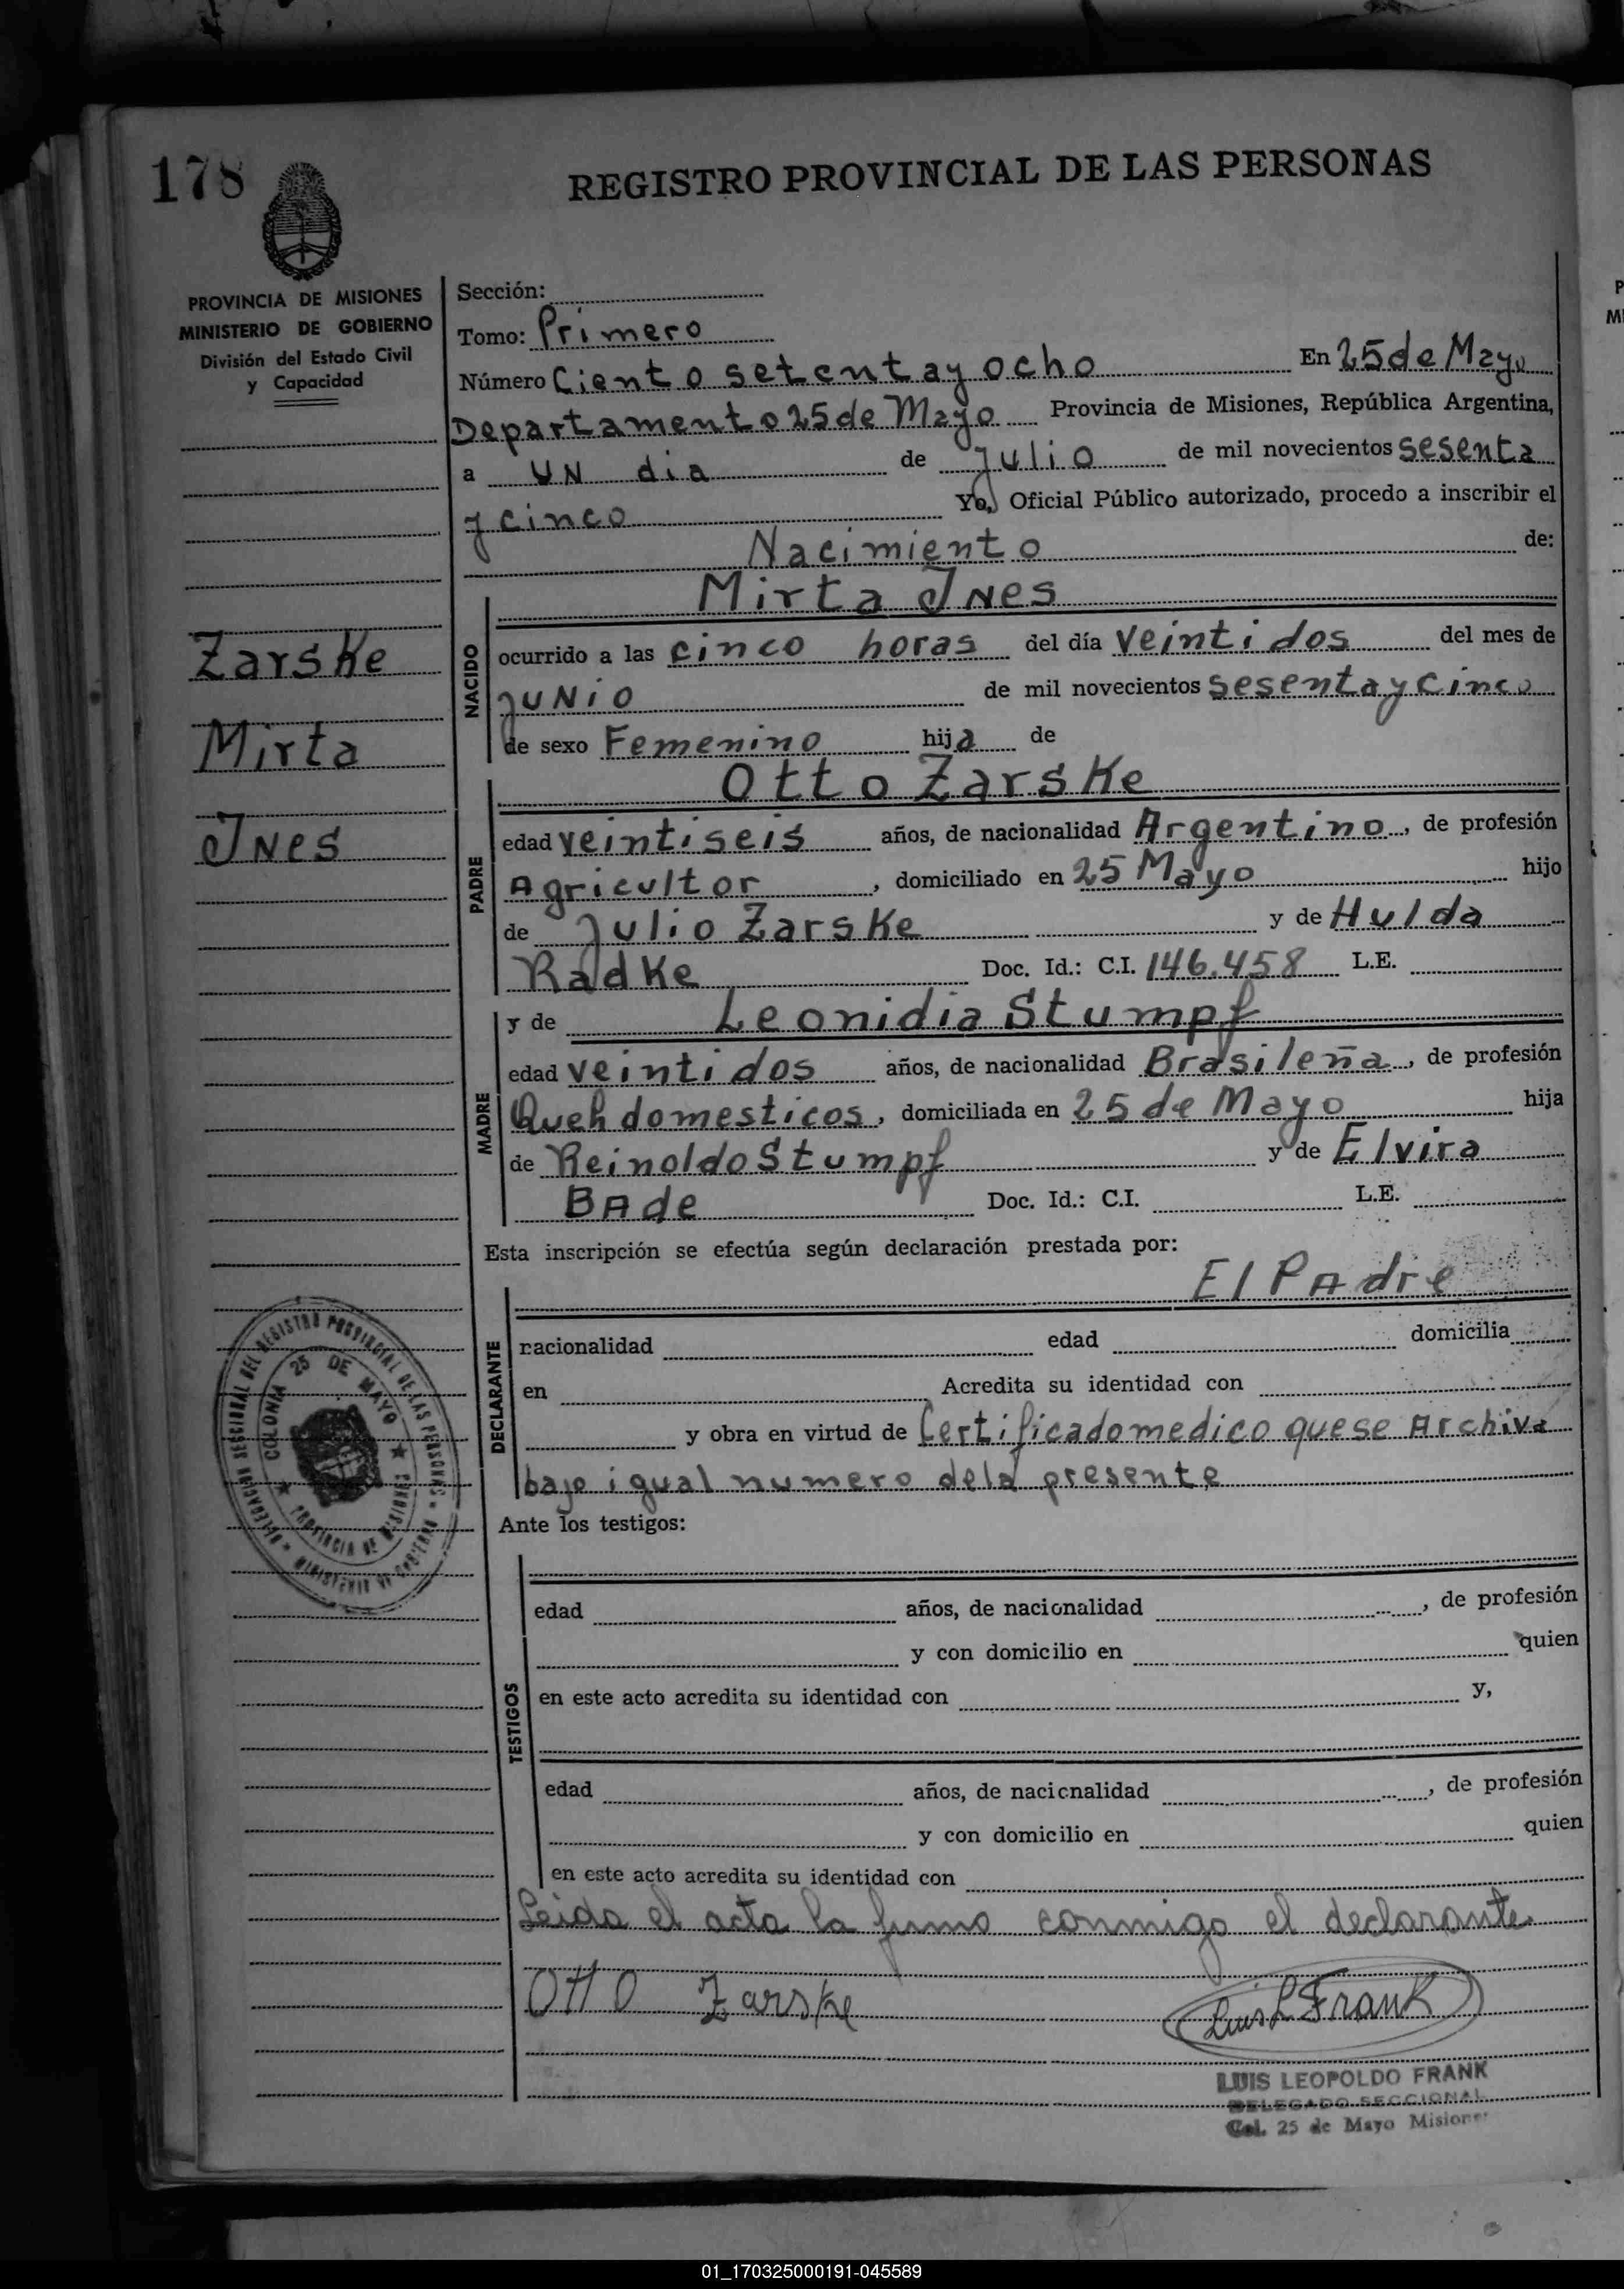 178
REGISTRO PROVINCIAL DE LAS PERSONAS
PROVINCIA DE MISIONES
MINISTERIO DE GOBIERNO
División del Estado Civil
y Capacidad
Zarske
Mirta
Ines
Sección:
Tomo: Primero
Número Ciento setenta y ocho En 25 de Mayo
Departamento 25 de Mayo Provincia de Misiones, República Argentina,
a un dia de Julio de mil novecientos sesenta
y cinco Yo, Oficial Público autorizado, procedo a inscribir el
Nacimiento de:
Mirta Ines
NACIDO
ocurrido a las cinco horas del día veintidos del mes de
junio de mil novecientos sesenta y cinco
de sexo Femenino hija de
Otto Zarske
PADRE
edad veintiseis años, de nacionalidad Argentino, de profesión
Agricultor, domiciliado en 25 Mayo hijo
de Julio Zarske y de Hulda
Radke Doc. Id.: C.I. 146.458 L.E.
y de Leonidia Stumpf
MADRE
edad veintidos años, de nacionalidad Brasileña, de profesión
Queh domesticos, domiciliada en 25 de Mayo hija
de Reinoldo Stumpf y de Elvira
BAde Doc. Id.: C.I. L.E.
Esta inscripción se efectúa según declaración prestada por:
El PAdre
DECLARANTE
racionalidad edad domicilia
en Acredita su identidad con
y obra en virtud de Certificado medico que se Archiva
bajo igual numero dela presente
Ante los testigos:
TESTIGOS
edad años, de nacionalidad , de profesión
y con domicilio en quien
en este acto acredita su identidad con y,
edad años, de nacicnalidad , de profesión
y con domicilio en quien
en este acto acredita su identidad con
Leida el acta la firmo conmigo el declarante
Otto Zarske
Luis L Frank
LUIS LEOPOLDO FRANK
DELEGADO SECCIONAL
Col. 25 de Mayo Misiones
DELEGACION SECCIONAL DEL REGISTRO PROVINCIAL DE LAS PERSONAS
COLONIA 25 DE MAYO
PROVINCIA DE MISIONES
01_170325000191-045589